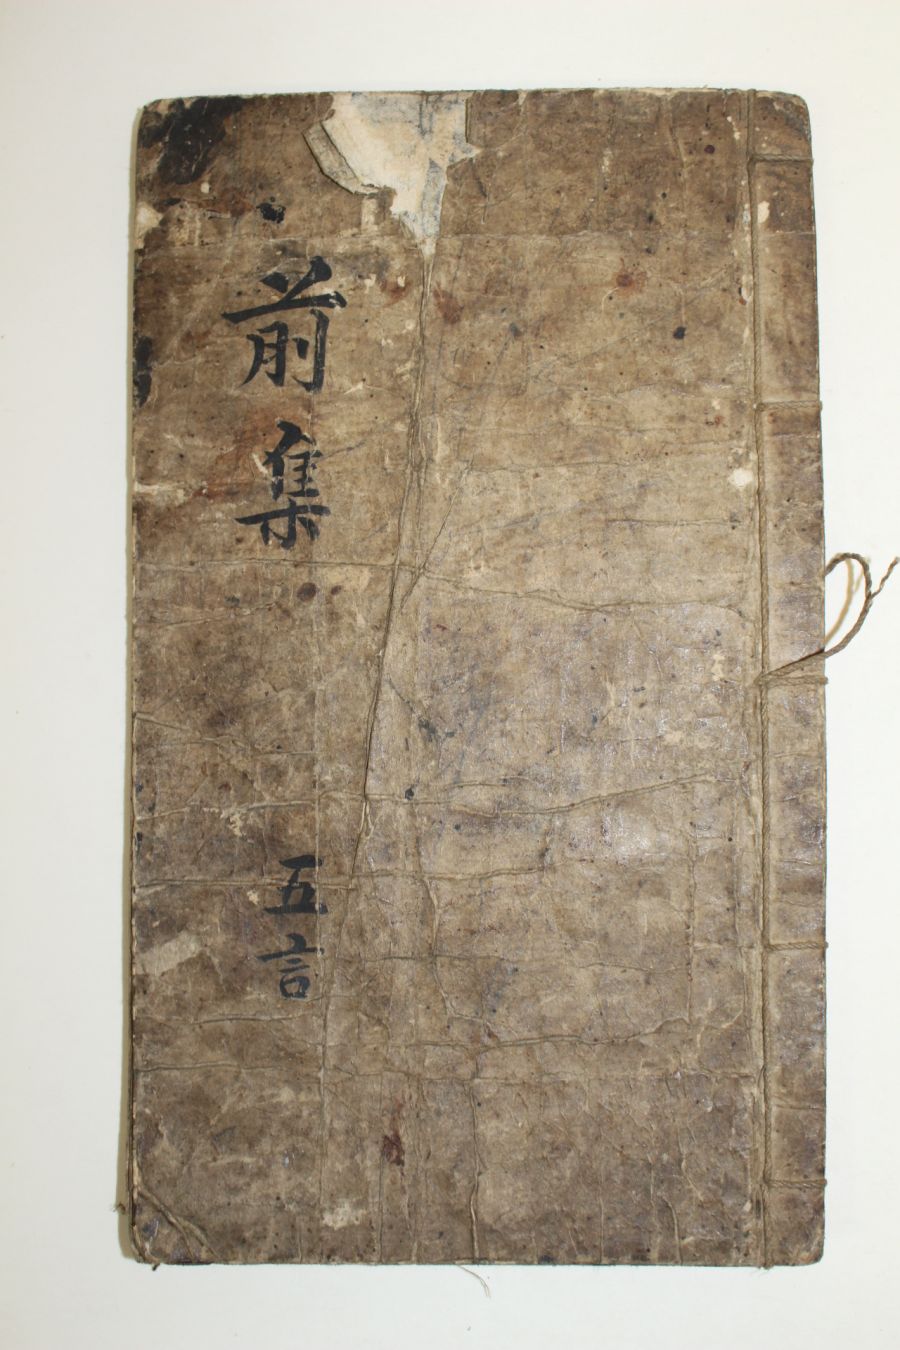 前集
五言